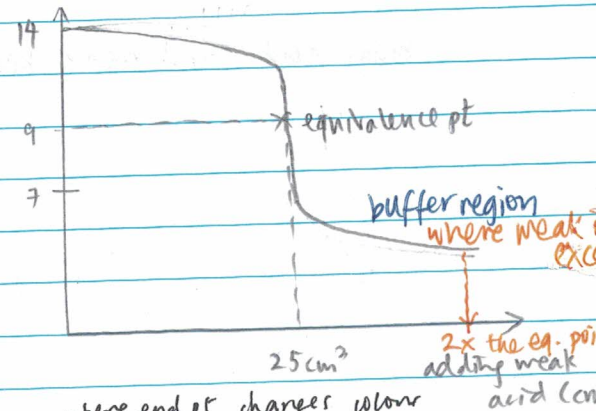 14
9
equivalence pt
7
buffer region
where weak
2x the eq. poi
25cm³
adding weak
acid (cm
where end pt changes colour